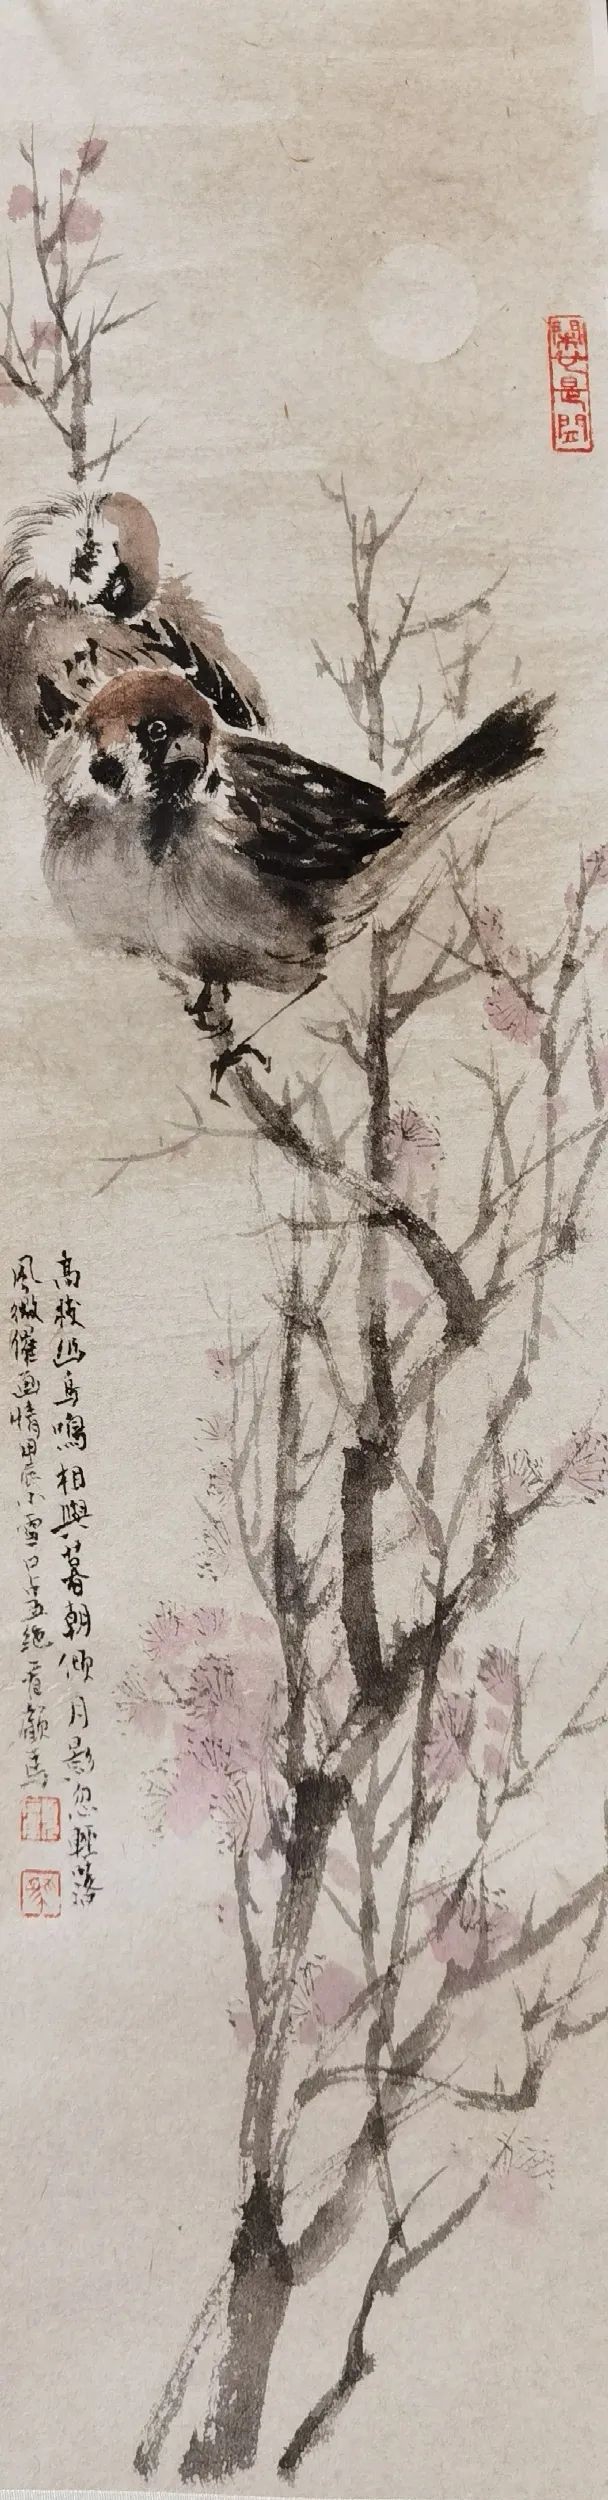 高枝幽鸟鳴相與暮朝傾月影忽輕落
風微催画情甲辰小雪口占五绝一首